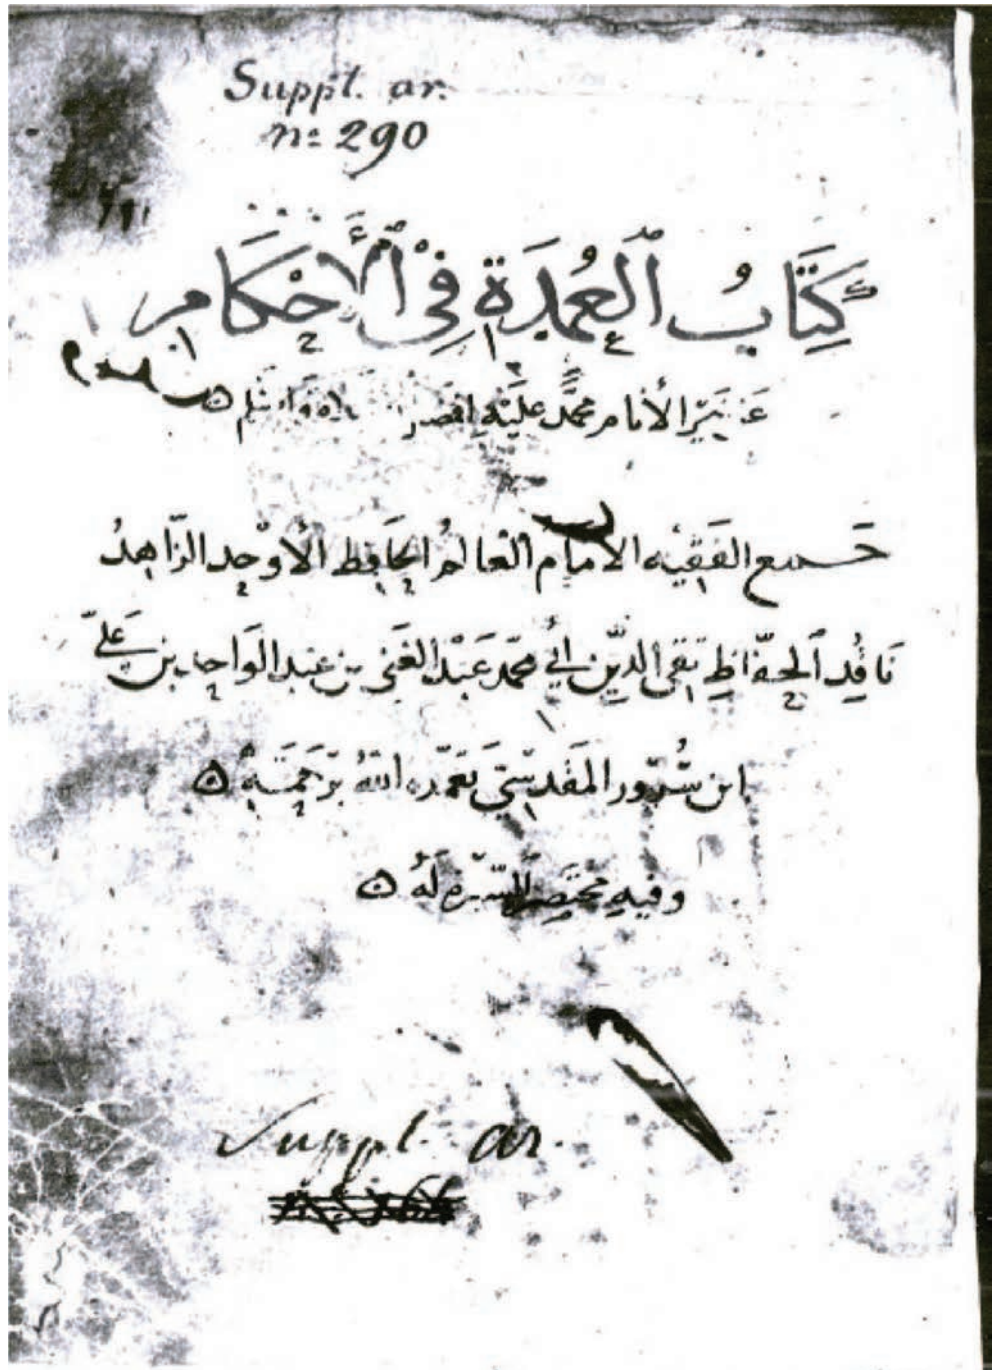 Suppl. ar.
n: 290
كِتَابُ ٱلْعُمْدَة فِي ٱلْأَحْكَام
عَن خَيْرِ الأنام محمَّد عَلَيْهِ افضل وَالسَّلم
جَمع الفَقِيْه الامَام العَالم الحَافِظ الأوْحد الزَّاهدُ
نَاقِد ٱلحفَّاظِ تقى الدِّين أبي محمّد عَبْد الغَني بن عبد الوَاحد بن عَليّ
ابن سُرُور المَقدسِيّ تغمّده اللهُ برَحمَتِهِ
وفيهِ مختَصر السّيرَة لَهُ
Suppl. ar.